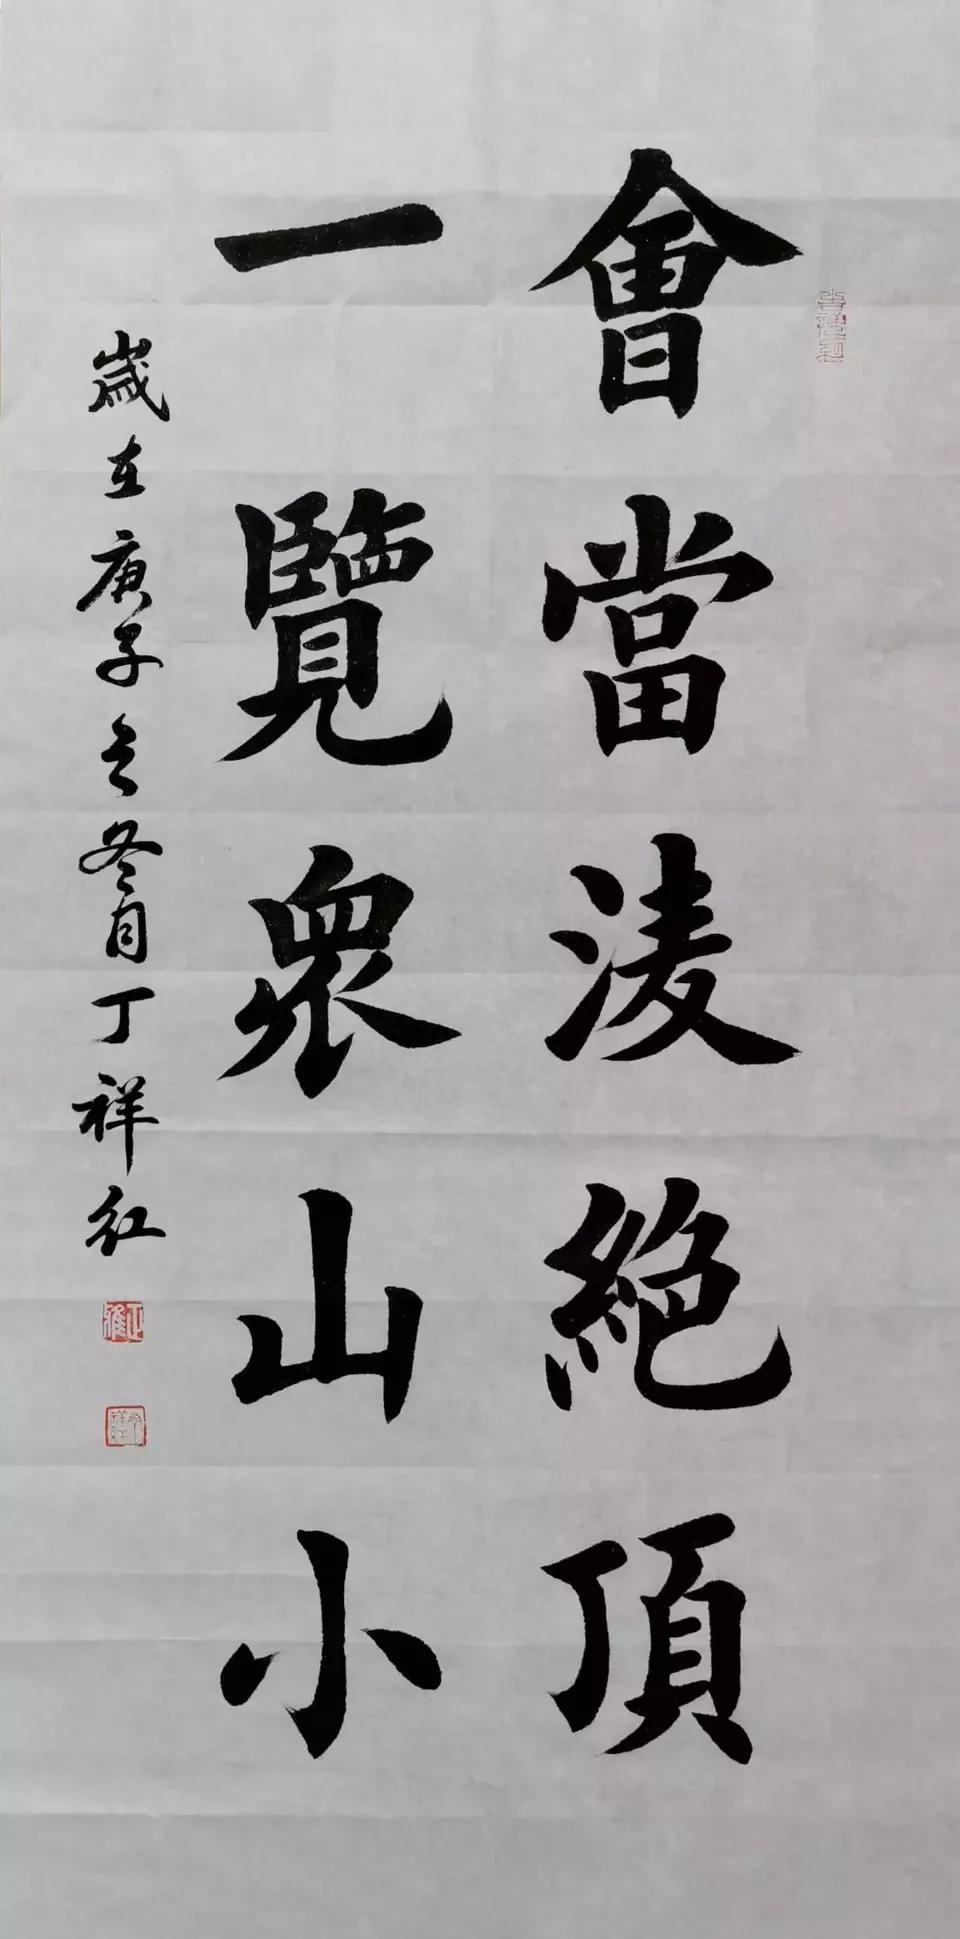 會當淩絶頂
一覽衆山小
歲在庚子之冬月丁祥红